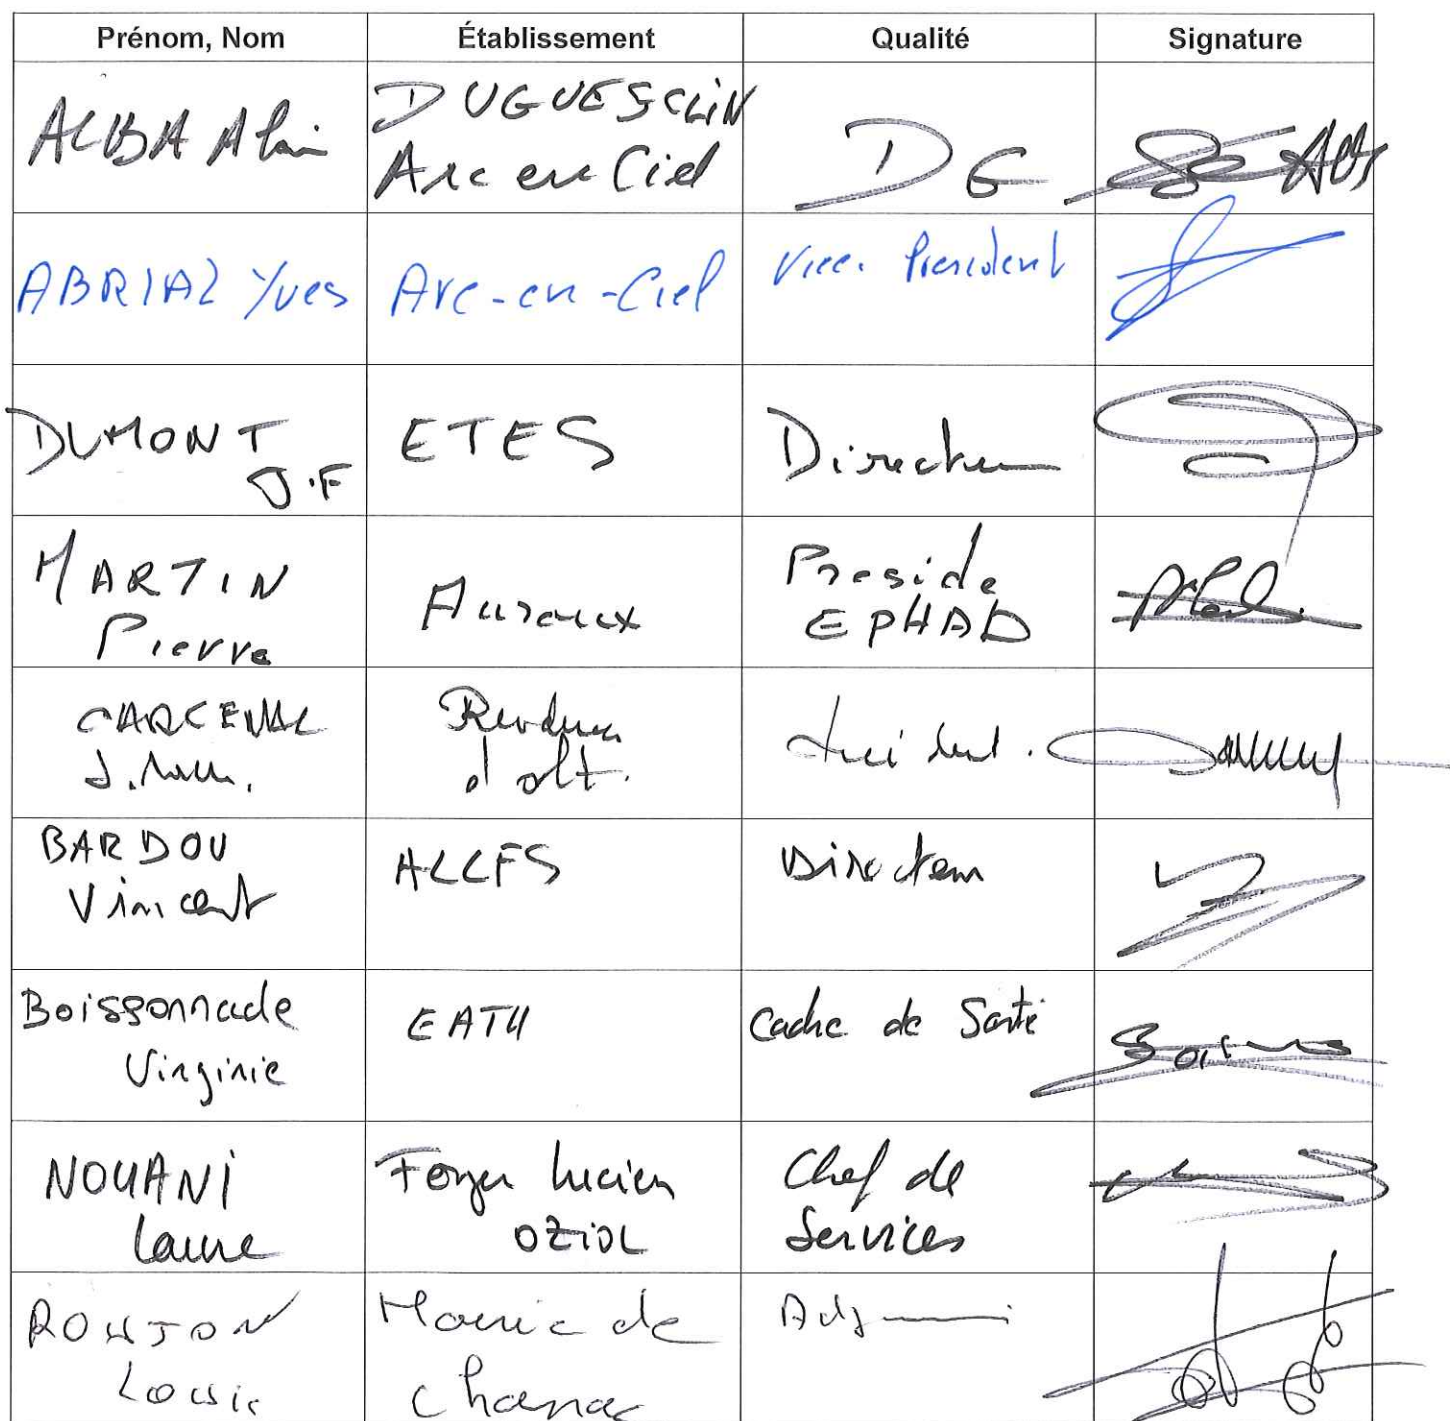 Prénom, Nom Établissement Qualité Signature
ALBA Alain DUGUESCLIN Arc en Ciel DG
ABRIAL Yves Arc-en-Ciel Vice. President
DUMONT J.F ETES Directeur
MARTIN Pierre Auroux Preside EPHAD
d'olt.
BARDOU Vincent ALLFS Directeur
Boissonnade Virginie EATU Cadre de Santé
NOUANI Laure Foyer Lucien OZIOL Chef de Services
Mairie de Chanac